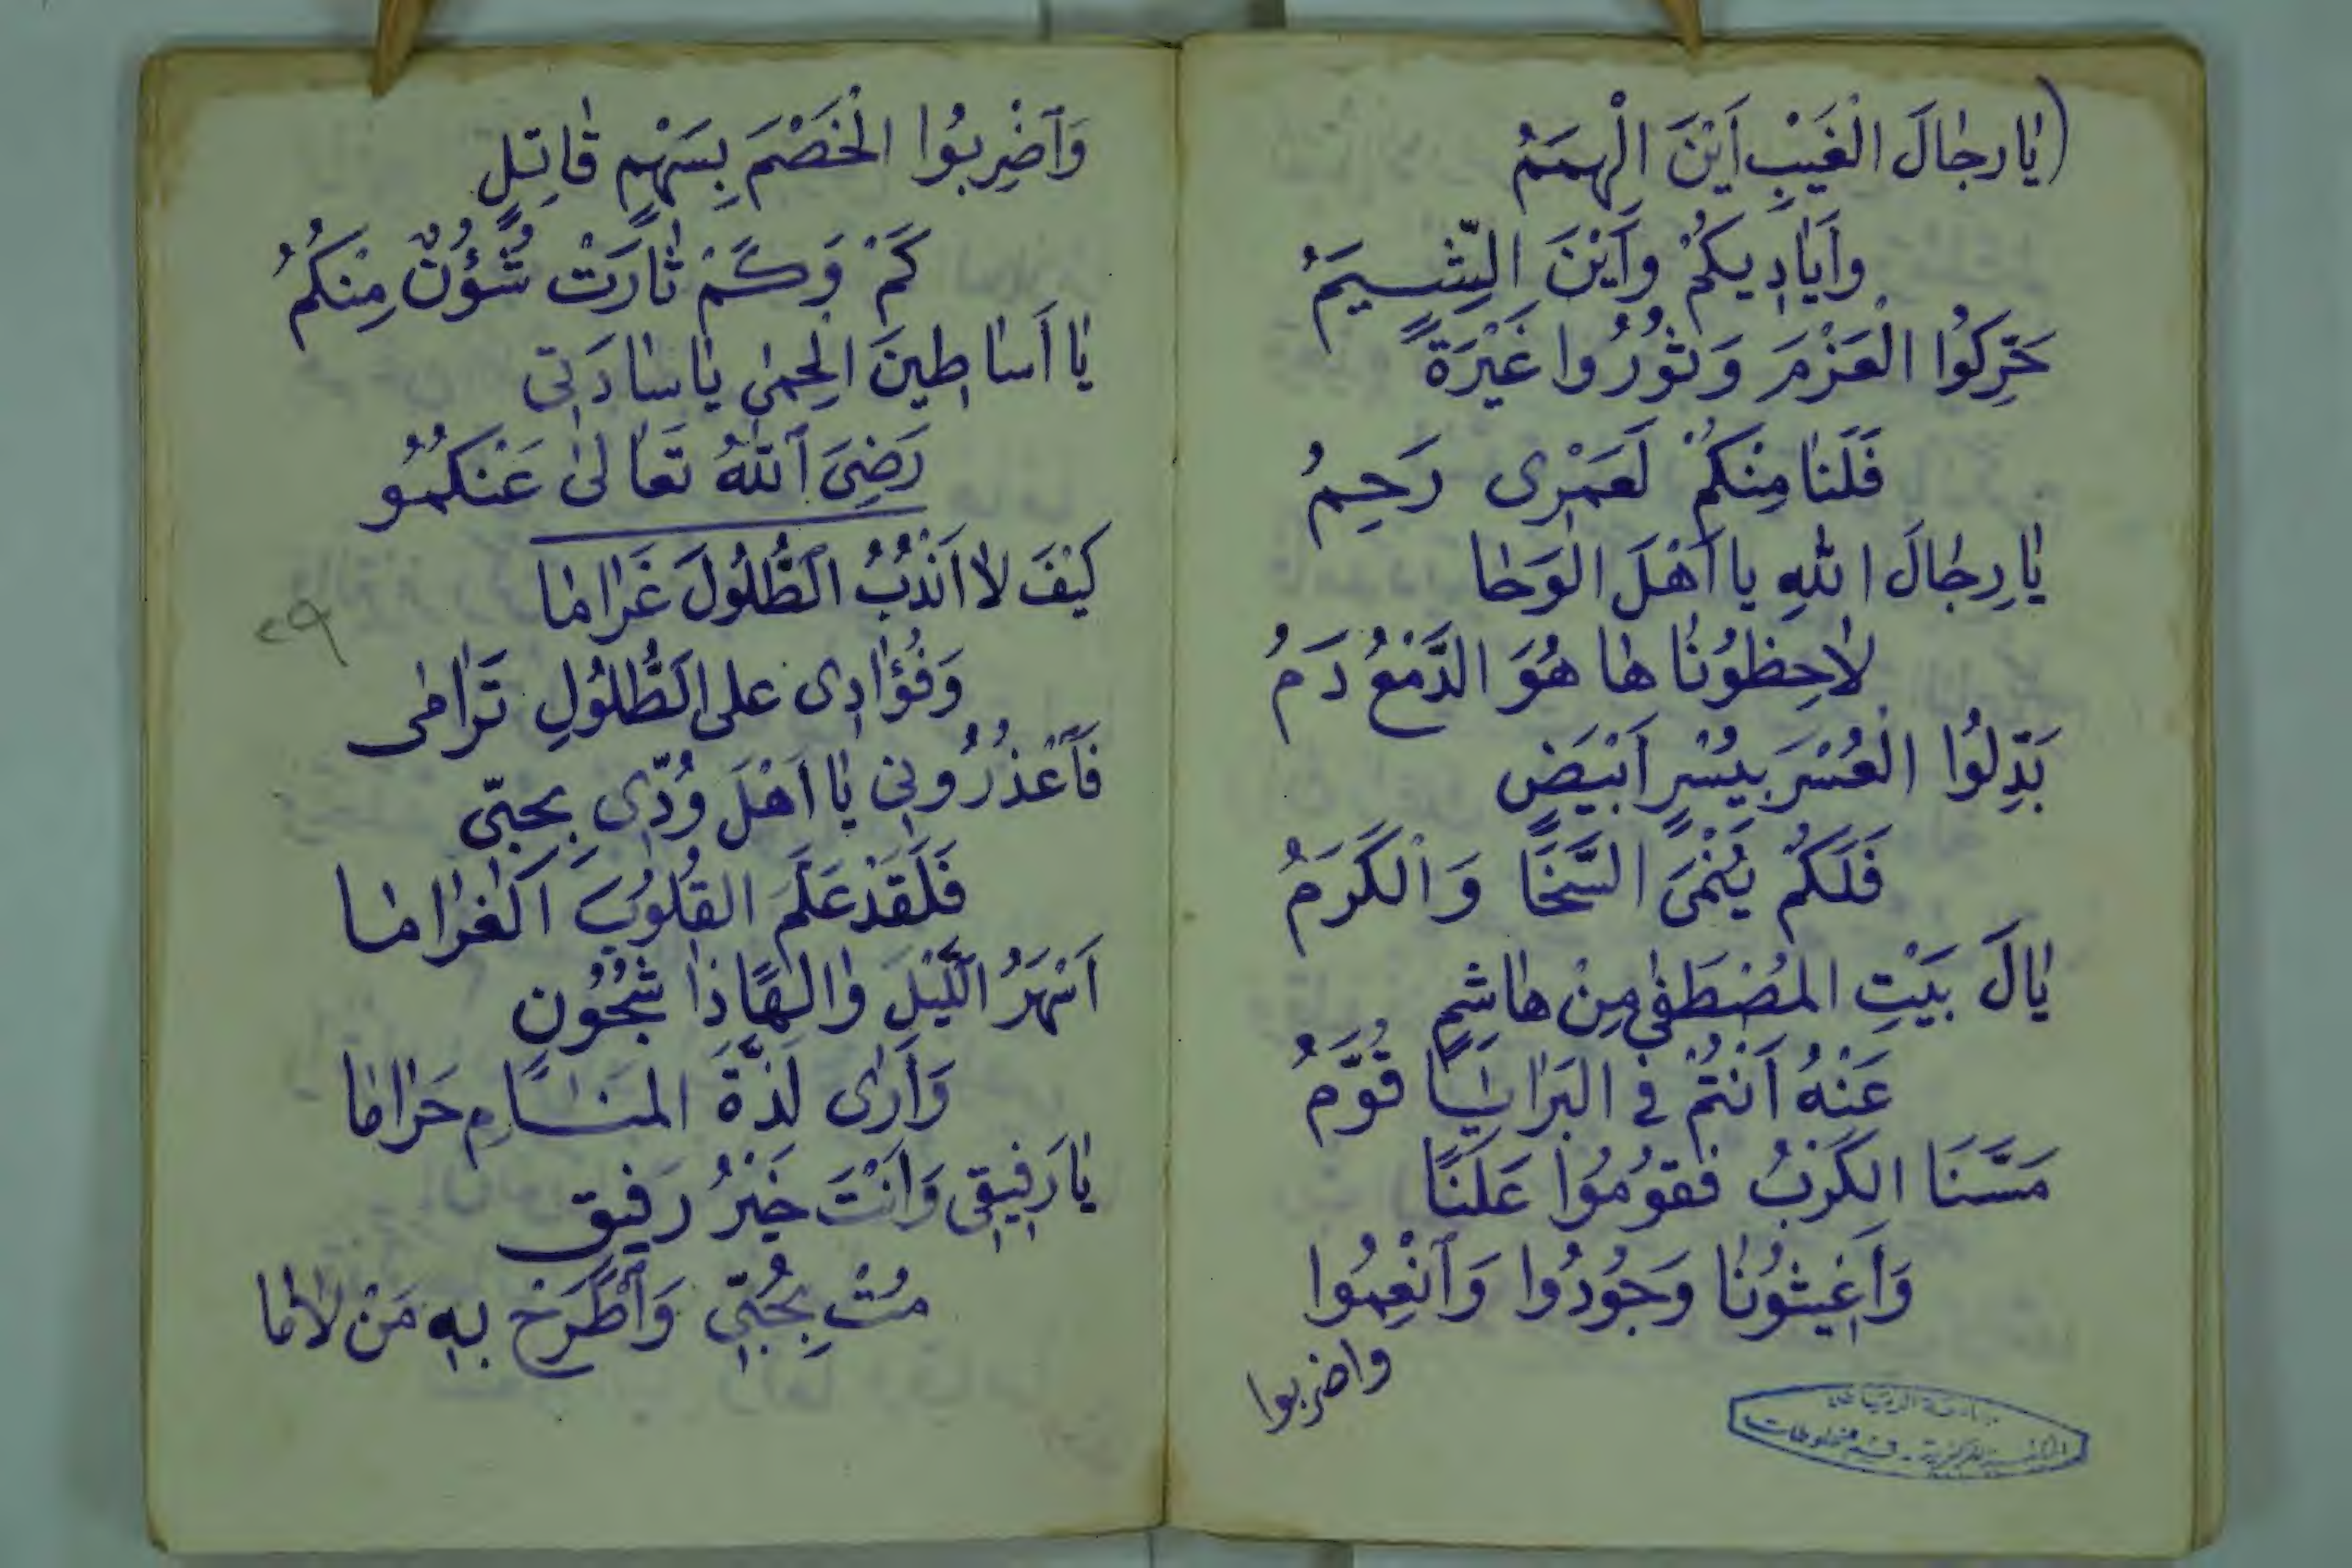 (يَا رِجَالَ الْغَيْبِ اَيْنَ الْهِمَمُ
وَاَيَادِيكُمْ وَاَيْنَ الشِّيَمُ
حَرِّكُوا الْعَزْمَ وَثُورُوا غَيْرَةً
فَلَنَا مِنْكُمْ لَعَمْرِى رَحِمُ
يَا رِجَالَ اللهِ يا اَهْلَ الوَحَا
لَاحِظُونَا هَا هُوَ الدَّمْعُ دَمُ
بَدِّلُوا الْعُسْرَ بِيُسْرٍ اَبْيَضٍ
فَلَكُمْ يُنْمَىَ السَّخَا وَالْكَرَمُ
يَالَ بَيْتِ المُصْطَفٰى مِنْ هَاشِمٍ
عَنْهُ اَنْتُمْ فِى البَرَايَا قُوَّمُ
مَسَّنَا الكَرْبُ فَقُومُوا عَلَنًا
وَاَغِيثُونَا وَجُودُوا وَاَنْعِمُوا
واضربوا
جامعة الرياض
المكتبة المركزية - قسم مخطوطات
وَاَضْرِبُوا الْخَصْمَ بِسَهْمٍ قَاتِلٍ
كَمْ وَكَمْ ثَارَتْ شُؤُنٌ مِنْكُمُ
يَا اَسَاطِينَ الْحِمٰى يَا سَادَتِى
رَضِىَ ٱللهُ تَعَالىٰ عَنْكُمُو
كَيْفَ لَا اَنْدُبُ الطُّلُولَ غَرَامَا
وَفُؤَادِى على الطُّلُولِ تَرَامٰى
٢٩
فَاَعْذُرُونِى يَا اَهْلَ وُدِّى بِحُبِّى
فَلَقَدْ عَلَّمَ القُلُوبَ الْغَرَامَا
اَسْهَرُ اللَّيْلَ وَالِهًا ذَا شُجُونٍ
وَاَرٰى لَذَّةَ المَنَامِ حَرَامَا
يَا رَفِيقِى وَاَنْتَ خَيْرُ رَفِيقٍ
مُتْ بِحُبِّى وَاَطَّرِحْ بِهِ مَنْ لَامَا